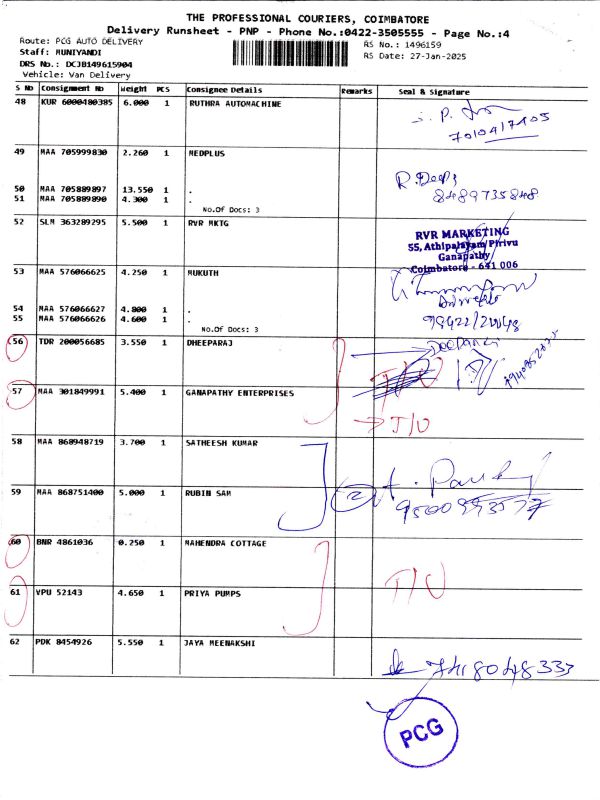 THE PROFESSIONAL COURIERS, COIMBATORE
Delivery Runsheet - PNP - Phone No.:0422-3505555 - Page No.:4
Route: PCG AUTO DELIVERY
RS No.: 1496159
Staff: MUNIYANDI
RS Date: 27-Jan-2025
DRS No.: DCJB149615904
Vehicle: Van Delivery
S No Consignment No Weight PCS Consignee Details Remarks Seal & Signature
48 KUR 6000480385 6.000 1 RUTHRA AUTOMACHINE
49 MAA 705999830 2.260 1 MEDPLUS
R. Deepi
8489735848
50 MAA 705889897 13.550 1 .
51 MAA 705889890 4.300 1 .
No.Of Docs: 3
52 SLM 363289295 5.500 1 RVR MKTG
RVR MARKETING
55, Athipalayam Pirivu
Ganapathy
Coimbatore - 641 006
53 MAA 576066625 4.250 1 MUKUTH
54 MAA 576066627 4.800 1 .
55 MAA 576066626 4.600 1 .
No.Of Docs: 3
56 TDR 200056685 3.550 1 DHEEPARAJ
Deeparaj
T/U
57 MAA 301849991 5.400 1 GANAPATHY ENTERPRISES
T/U
58 MAA 868948719 3.700 1 SATHEESH KUMAR
59 MAA 868751400 5.000 1 RUBIN SAM
2
60 BNR 4861036 0.250 1 MAHENDRA COTTAGE
T/U
61 VPU 52143 4.650 1 PRIYA PUMPS
62 PDK 8454926 5.550 1 JAYA MEENAKSHI
7418048337
PCG